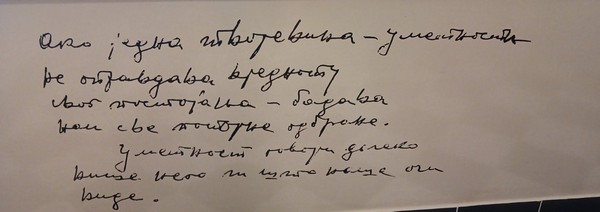 Ако једна творевина – уметности
не оправдава вредност
свог постојања – бадава
нам све потврде одбране.
Уметност говори далеко
више него ли што наше очи
виде.